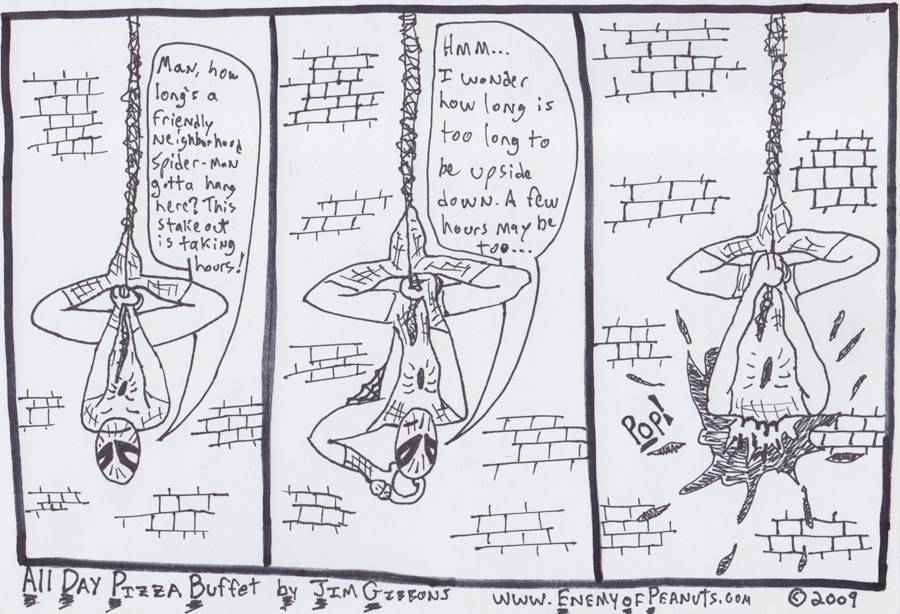 Man, how
long's a
friendly
neighborhood
Spider-Man
gotta hang
here? This
stake out
is taking
hours!
Hmm...
I wonder
how long is
too long to
be upside
down. A few
hours may be
too...
Pop!
All Day Pizza Buffet by Jim Gibbons www.EnemyofPeanuts.com © 2009